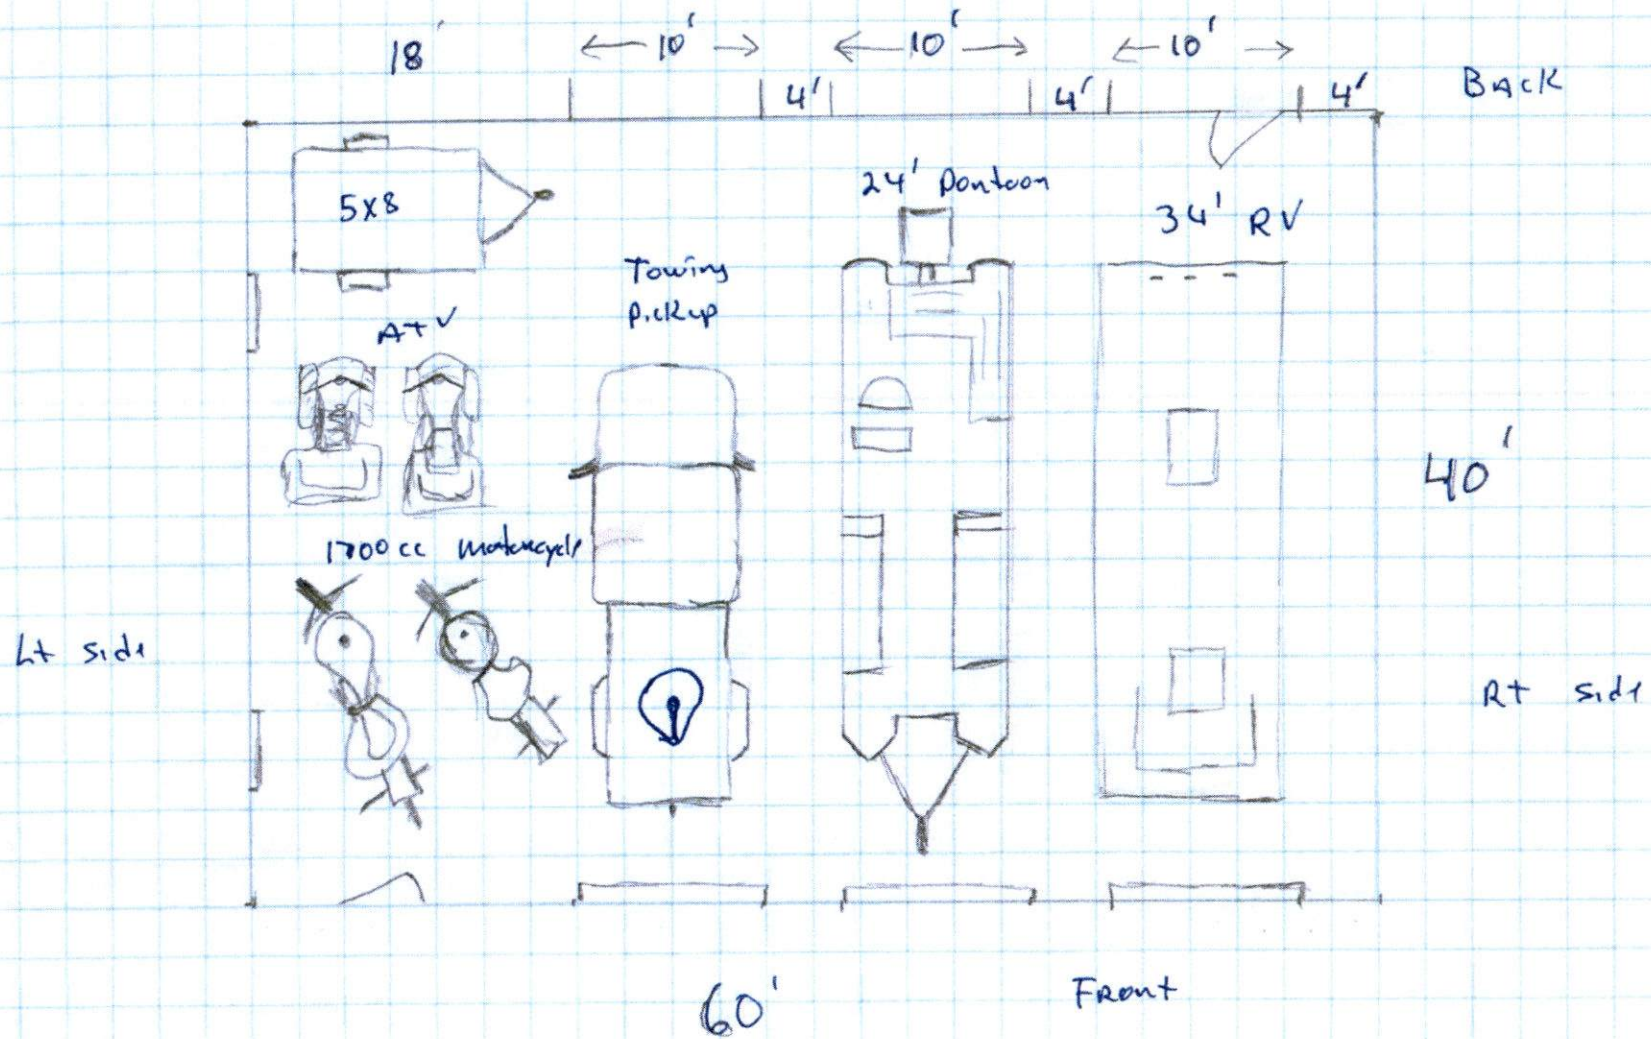 18' 10' 10' 10'
4' 4' 4' Back
24' Pontoon
5x8 34' RV
Towing
Pickup
ATV
40'
1700cc Motorcycle
Lt side
Rt side
Front
60'